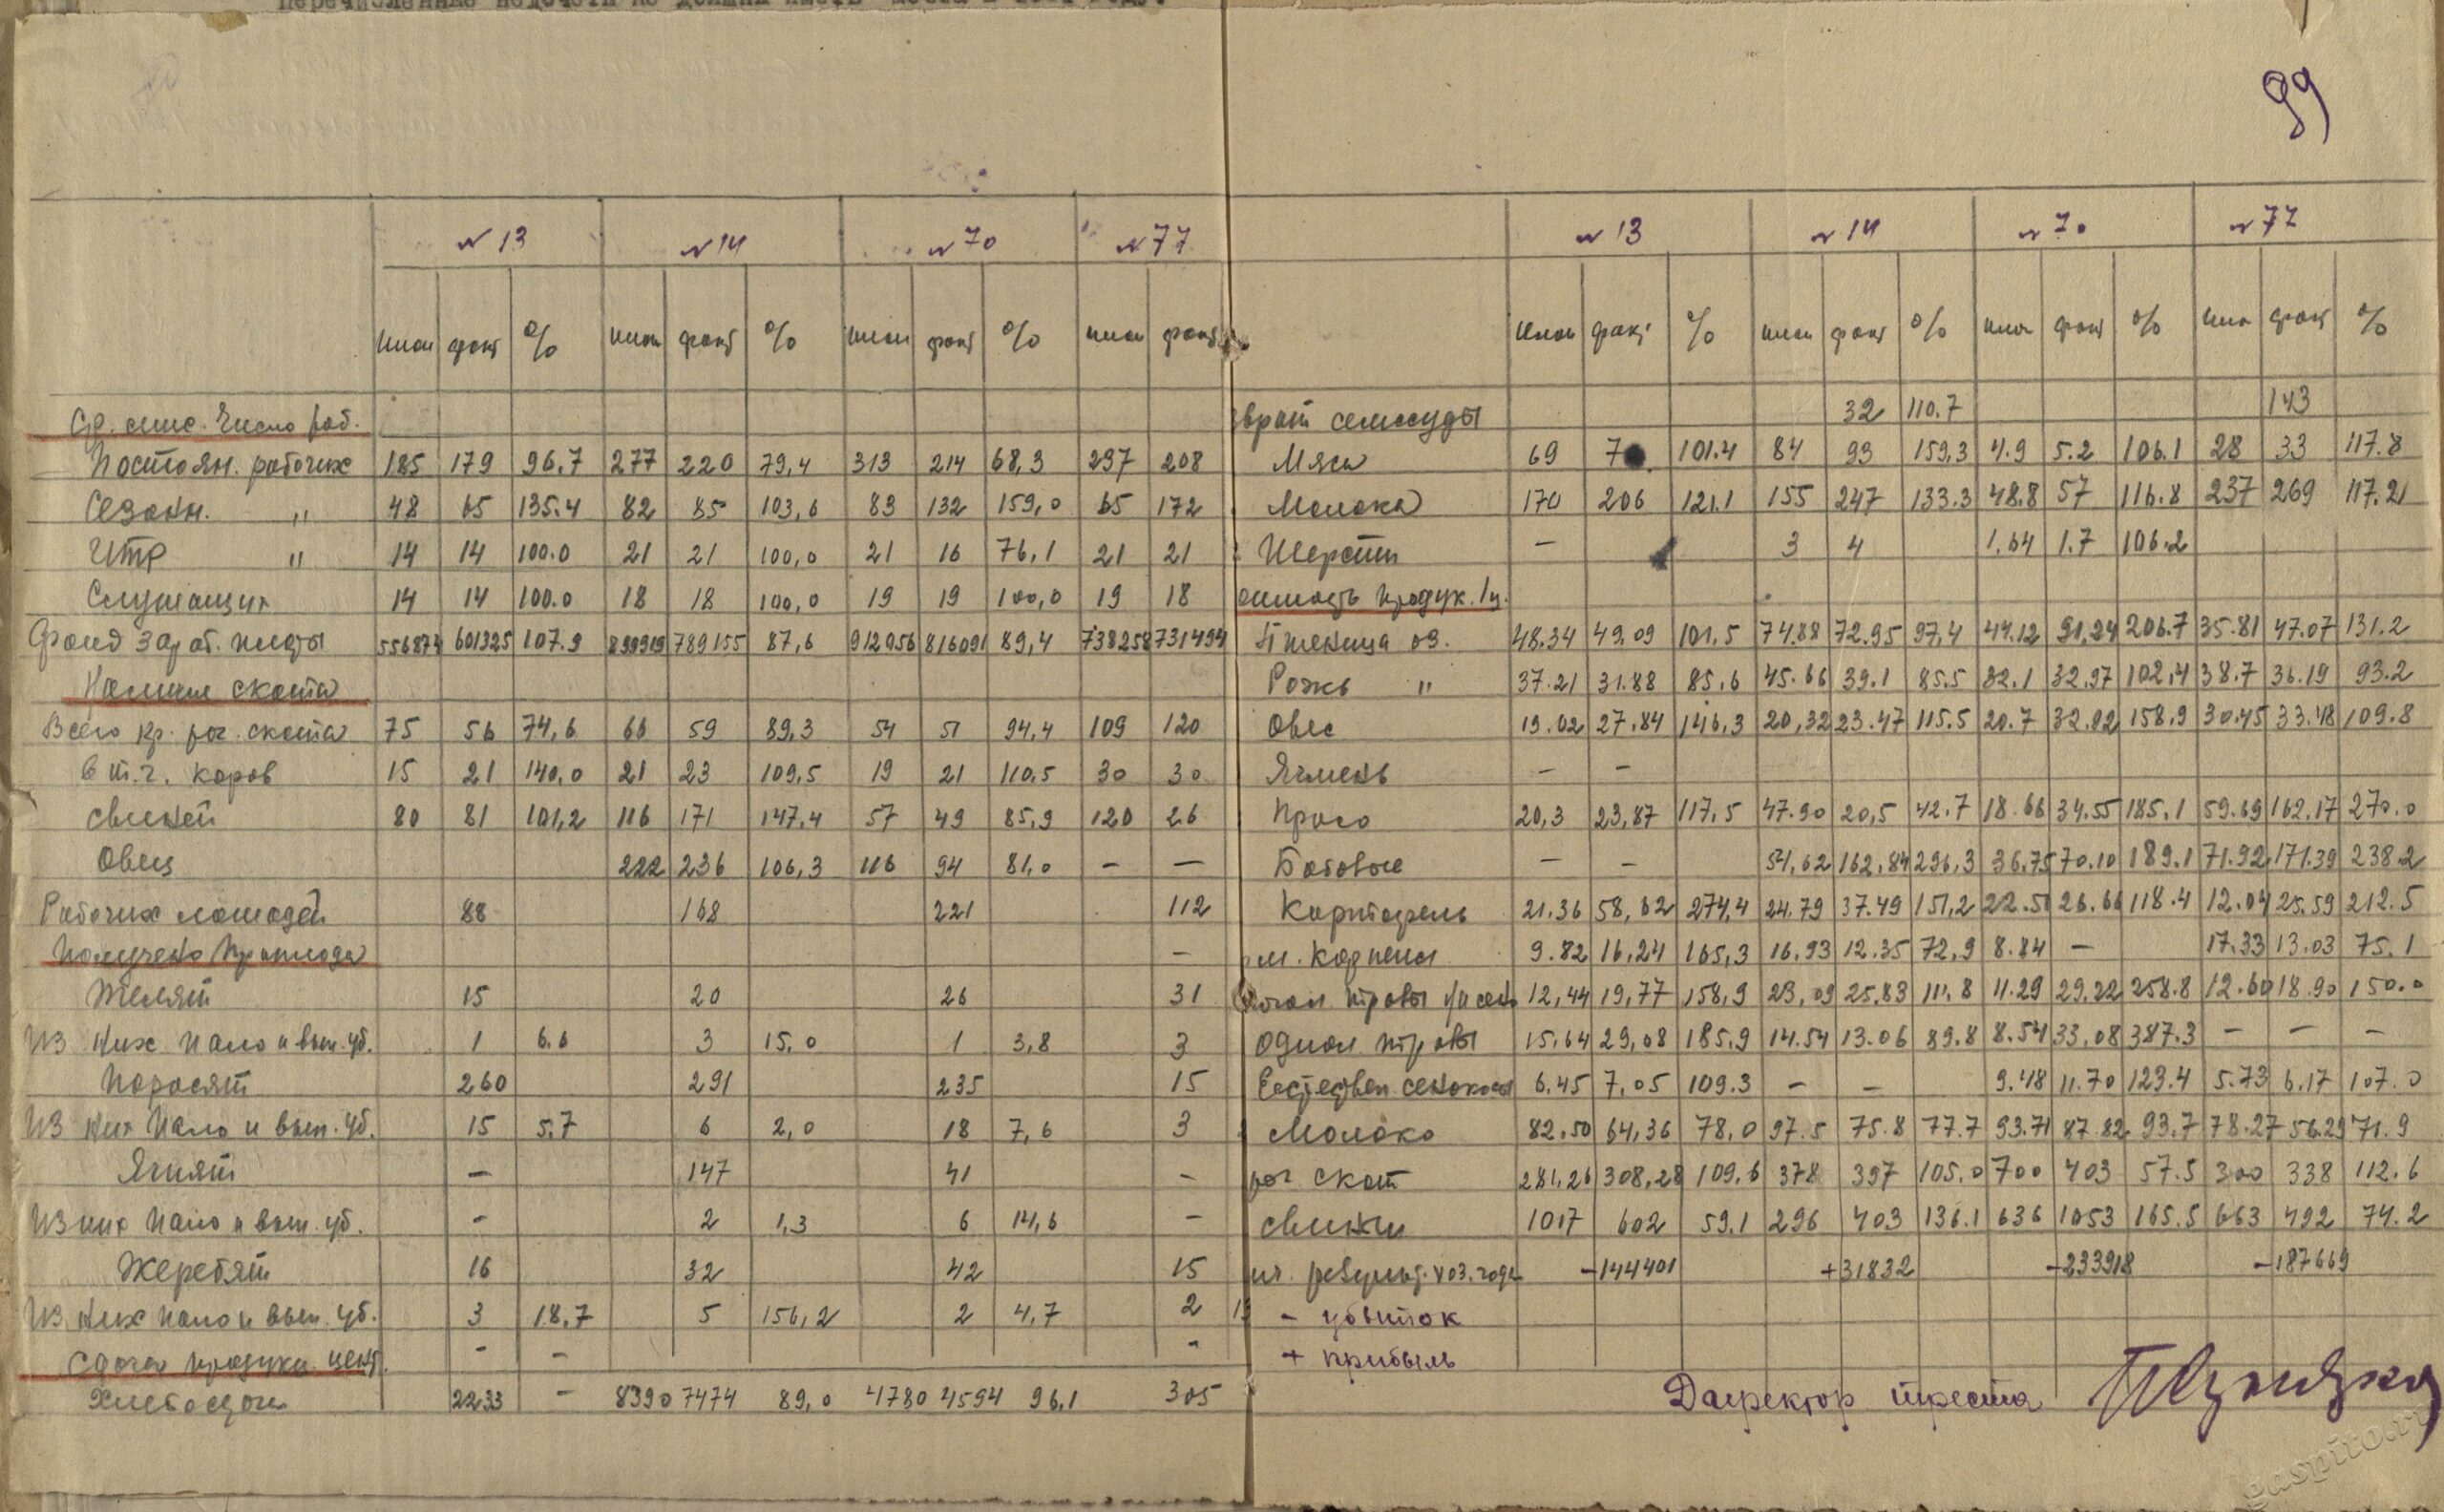 99
№ 13 № 14 № 70 № 77
план факт % план факт % план факт % план факт
Ср. спис. число раб.
Постоян. рабочих 185 179 96,7 277 220 79,4 313 214 68,3 237 208
Сезонн. " 48 65 135.4 82 85 103,6 83 132 159,0 65 172
ИТР " 14 14 100.0 21 21 100,0 21 16 76,1 21 21
Служащих 14 14 100.0 18 18 100,0 19 19 100,0 19 18
Фонд зараб. платы 556874 601325 107.9 899919 789155 87,6 912056 816091 89,4 738258 731494
Наличие скота
Всего кр. рог. скота 75 56 74,6 66 59 89,3 54 51 94,4 109 120
в т.ч. коров 15 21 140,0 21 23 109,5 19 21 110,5 30 30
Свиней 80 81 101,2 116 171 147,4 57 49 85,9 120 26
Овец 222 236 106,3 116 94 81,0 — —
Рабочих лошадей 88 168 221 112
Получено приплода —
Телят 15 20 26 31
Из них пало и вын. уб. 1 6.6 3 15,0 1 3,8 3
Поросят 260 291 235 15
Из них пало и вын. уб. 15 5.7 6 2,0 18 7,6 3
Ягнят — 147 41 -
Из них пало и вын. уб. - 2 1,3 6 14,6 -
Жеребят 16 32 42 15
Из них пало и вын. уб. 3 18.7 5 156,2 2 4,7 2
Сдача продукц. цент. - - -
Хлебосдача 2233 - 8390 7474 89,0 4780 4594 96,1 305
№ 13 № 14 № 70 № 77
план факт % план факт % план факт % план факт %
врат семссуды 32 110.7 143
Мяса 69 70 101.4 84 93 159,3 4.9 5.2 106.1 28 33 117.8
Молока 170 206 121.1 155 247 133.3 48.8 57 116.8 237 269 117.21
Шерсти — 3 4 1.64 1.7 106.2
оимость продук. 1ц.
Пшеница оз. 48.34 49.09 101.5 74.88 72.95 97,4 44.12 91,24 206.7 35.81 47.07 131.2
Рожь " 37.21 31.88 85,6 45.66 39.1 85.5 32.1 32,97 102,4 38.7 36.19 93.2
Овес 19.02 27.84 146,3 20,32 23.47 115.5 20.7 32.92 158.9 30.45 33.48 109.8
Ячмень — —
Просо 20,3 23,87 117,5 47.90 20,5 42.7 18.66 34.55 185.1 59.69 162.17 270.0
Бобовые — — 54,62 162,84 296,3 36.75 70.10 189.1 71.92 171.39 238.2
Картофель 21.36 58,62 274,4 24.79 37.49 151,2 22.50 26.66 118.4 12.04 25.59 212.5
рм. корнепл 9.82 16,24 165,3 16,93 12.35 72,9 8.84 — 17.33 13.03 75.1
травы на сено 12,44 19,77 158,9 23,09 25.83 111.8 11.29 29.22 258.8 12.60 18.90 150.0
Однол. травы 15,64 29,08 185.9 14.54 13.06 89.8 8.54 33,08 387.3 — — —
Естествен. сенокосы 6.45 7.05 109.3 — — 9.48 11.70 123.4 5.73 6.17 107.0
Молоко 82.50 64,36 78,0 97.5 75.8 77.7 93.71 87.82 93.7 78.27 56.29 71.9
рог. скот 281,26 308,28 109,6 378 397 105.0 700 403 57.5 300 338 112.6
Свиньи 1017 602 59.1 296 403 136.1 636 1053 165.5 663 492 74.2
ин. результ. хоз. года -144401 +31832 -233918 -187669
- убыток
+ прибыль
Директор треста
gaspito.ru